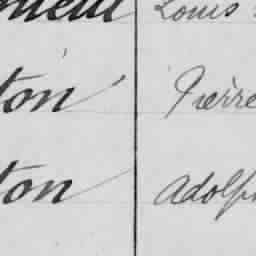 Louis
ton Pièrre
ton Adolph